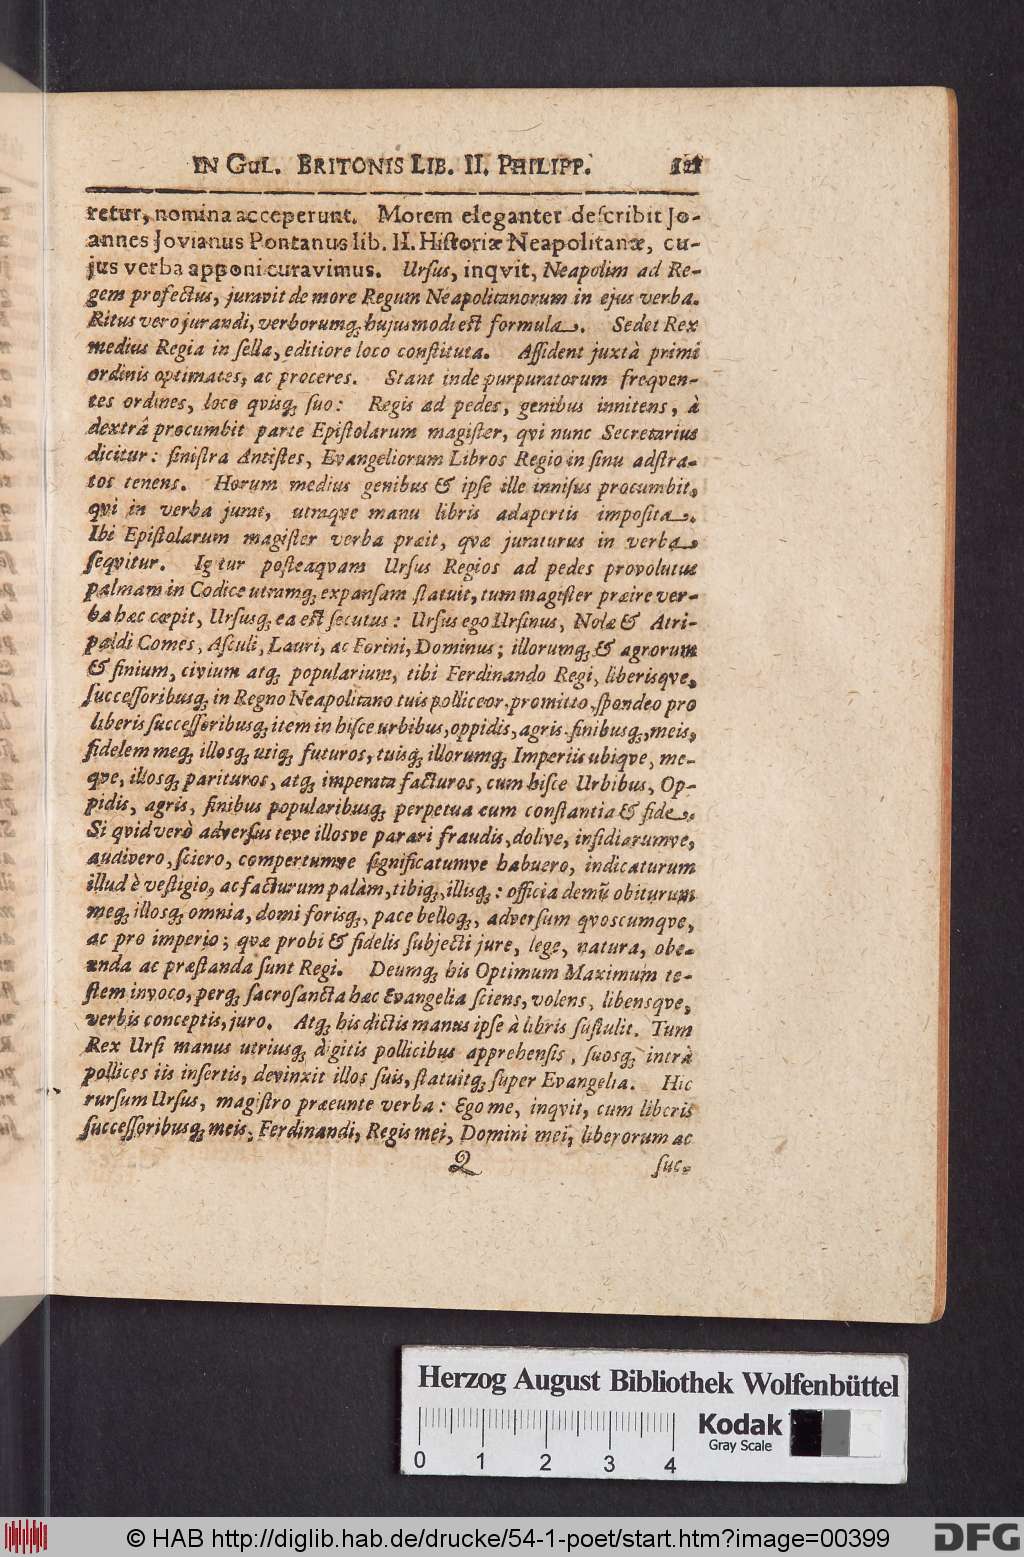 IN GUL. BRITONIS LIB. II. PHILIPP. 121
retur, nomina acceperunt. Morem eleganter deſcribit Jo-
annes Jovianus Pontanus lib. II. Hiſtoriæ Neapolitanæ, cu-
jus verba apponi curavimus. Urſus, inqvit, Neapolim ad Re-
gem profectus, juravit de more Regum Neapolitanorum in ejus verba.
Ritus vero jurandi, verborumq; hujusmodi eſt formula. Sedet Rex
medius Regia in ſella, editiore loco conſtituta. Aſſident juxtà primi
ordinis optimates, ac proceres. Stant inde purpuratorum freqven-
tes ordines, loco qvisq; ſuo: Regis ad pedes, genibus innitens, à
dextrâ procumbit parte Epiſtolarum magiſter, qvi nunc Secretarius
dicitur: ſiniſtra Antiſtes, Evangeliorum Libros Regio in ſinu adſtra-
tos tenens. Horum medius genibus & ipſe ille inniſus procumbit,
qvi in verba jurat, utraqve manu libris adapertis impoſita.
Ibi Epiſtolarum magiſter verba præit, qvæ juraturus in verba
ſeqvitur. Ig tur poſteaqvam Urſus Regios ad pedes provolutus
palmam in Codice utramq; expanſam ſtatuit, tum magiſter præire ver-
ba hæc cœpit, Urſusq; ea eſt ſecutus: Urſus ego Urſinus, Nolæ & Atri-
paldi Comes, Aſculi, Lauri, ac Forini, Dominus; illorumq; & agrorum
& finium, civium atq; popularium, tibi Ferdinando Regi, liberisqve,
ſucceſſoribusq; in Regno Neapolitano tuis polliceor, promitto, ſpondeo pro
liberis ſucceſſoribusq; item in hiſce urbibus, oppidis, agris, finibusq;, meis,
fidelem meq; illosq; utiq; futuros, tuisq; illorumq; Imperiis ubiqve, me-
qve, illosq; parituros, atq; imperata facturos, cum hiſce Urbibus, Op-
pidis, agris, finibus popularibusq; perpetua cum conſtantia & fide.
Si qvid verò adverſus teve illosve parari fraudis, dolive, inſidiarumve,
audivero, ſciero, compertumve ſignificatumve habuero, indicaturum
illud è veſtigio, ac facturum palàm, tibiq;, illisq;: officia demũ obiturum
meq; illosq; omnia, domi forisq;, pace belloq;, adverſum qvoscumqve,
ac pro imperio; qvæ probi & fidelis ſubjecti jure, lege, natura, obe-
unda ac præſtanda ſunt Regi. Deumq; his Optimum Maximum te-
ſtem invoco, perq; ſacroſancta hæc Evangelia ſciens, volens, libensqve,
verbis conceptis, juro. Atq; his dictis manus ipſe à libris ſuſtulit. Tum
Rex Urſi manus utriusq; digitis pollicibus apprehenſis, ſuosq; intrà
pollices iis inſertis, devinxit illos ſuis, ſtatuitq; ſuper Evangelia. Hic
rurſum Urſus, magiſtro præeunte verba: Egome, inqvit, cum liberis
ſucceſſoribusq; meis, Ferdinandi, Regis mei, Domini mei, liberorum ac
Q ſuc-
Herzog August Bibliothek Wolfenbüttel
0 1 2 3 4
Kodak
Gray Scale
© HAB http://diglib.hab.de/drucke/54-1-poet/start.htm?image=00399
DFG